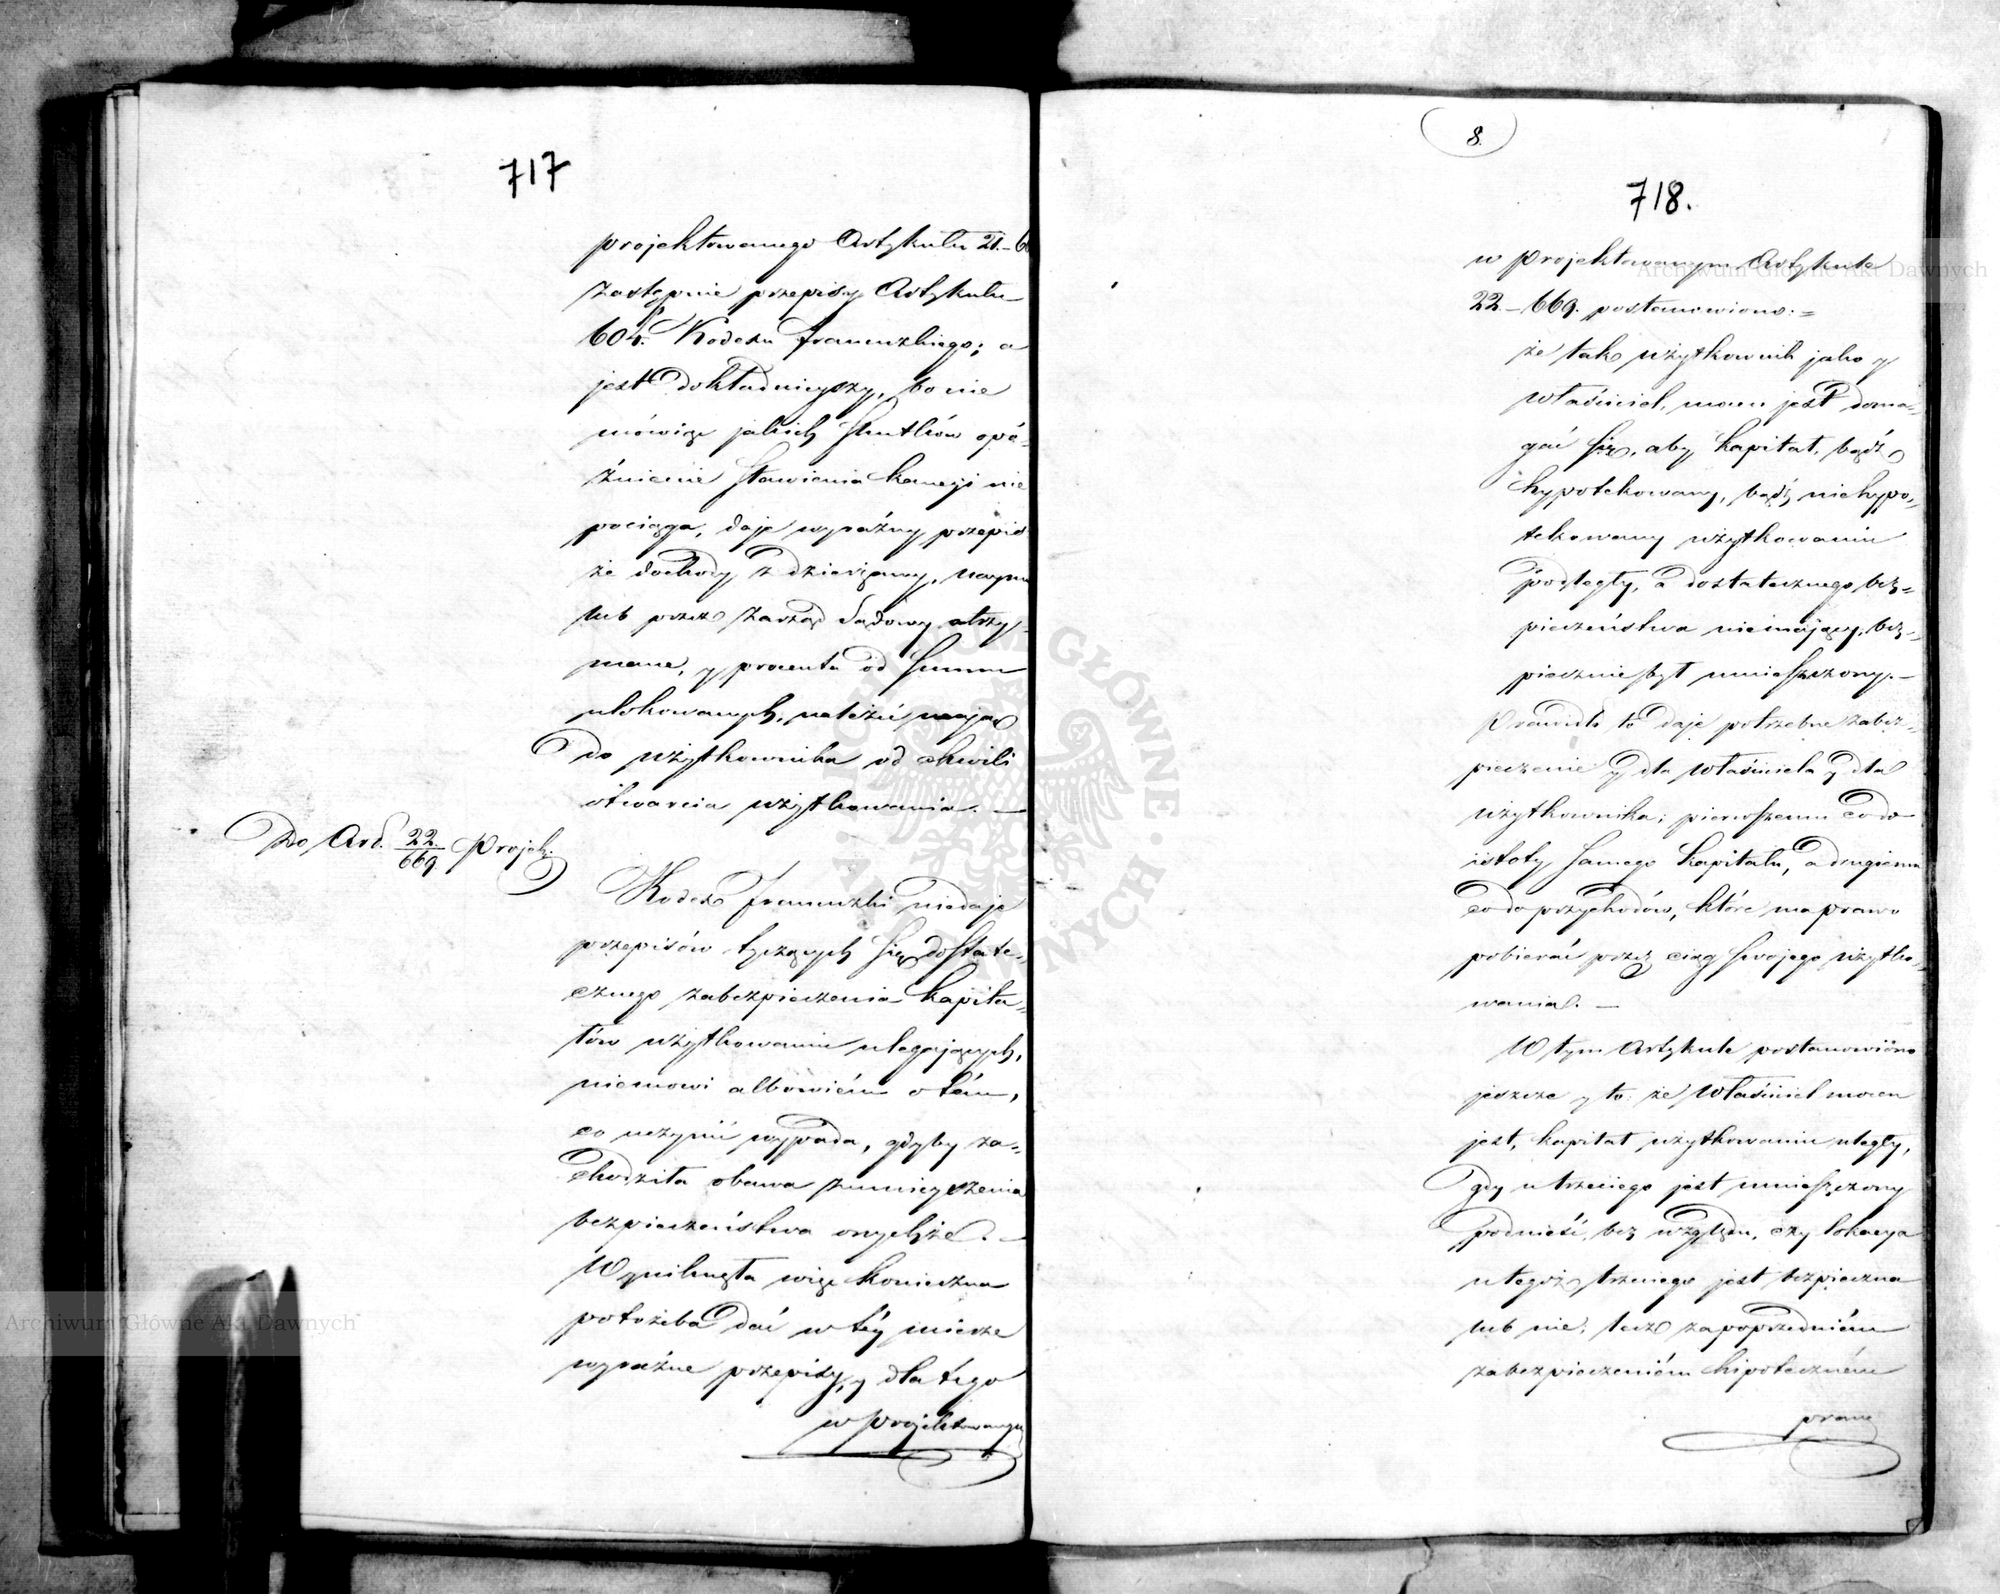 717
projektowanego Artykułu 21.–6
zastępuie przepisy Artykułu
604. Kodexu francuzkiego; a
jest dokładnieyszy, bo nie
mówiąc jakich skutków opó-
źnienie stawienia kaucyi nie
pociąga, daje wyraźny przepis
że dochody z dzierżawy, naymu
lub przez zarząd sądowy otrzy-
mane, y procenta od summ
ulokowanych, należéć mają
do użytkownika od chwili
otwarcia użytkowania. —
Do Art. 22./669. Projek:
Kodex francuzki niedaje
przepisów tyczących się dostate-
cznego zabezpieczenia kapita-
łów użytkowaniu ulegających,
niemowi albowiém o tém,
co uczynić wypada, gdyby za-
chodziła obawa zmnieyszenia
bezpieczeństwa onychże. —
Wyniknęła więc konieczna
potrzeba dać w téy mierze
wyraźne przepisy, y dla tego
w projektowanym
8.
718.
w projektowanym Artykule
22.–669. postanowiono: =
że tak użytkownik jako y
właściciel, mocen jest doma-
gać się, aby kapitał, bądź
hypotekowany, bądź niehypo-
tekowany użytkowaniu
podległy, a dostatecznego bez-
pieczeństwa niemający, bez-
piecznie był umieszczony. —
Prawidło to daje potrzebne zabez-
pieczenie y dla właściciela y dla
użytkownika; pierwszemu co do
istoty samego kapitału, a drugiemu
co do przychodów, które ma prawo
pobierać przez ciąg swojego użytko-
wania. —
W tym Artykule postanowiono
jeszcze y to: że właściciel mocen
jest, kapitał użytkowaniu uległy,
gdy u trzeciego jest umieszczony
podnieść, bez względu, czy lokacya
u tegoż trzeciego jest bezpieczna
lub nie; lecz za poprzedniém
zabezpieczeniém hipoteczném
praw
Archiwum Główne Akt Dawnych
Archiwum Główne Akt Dawnych
ARCHIWUM GŁÓWNE AKT DAWNYCH